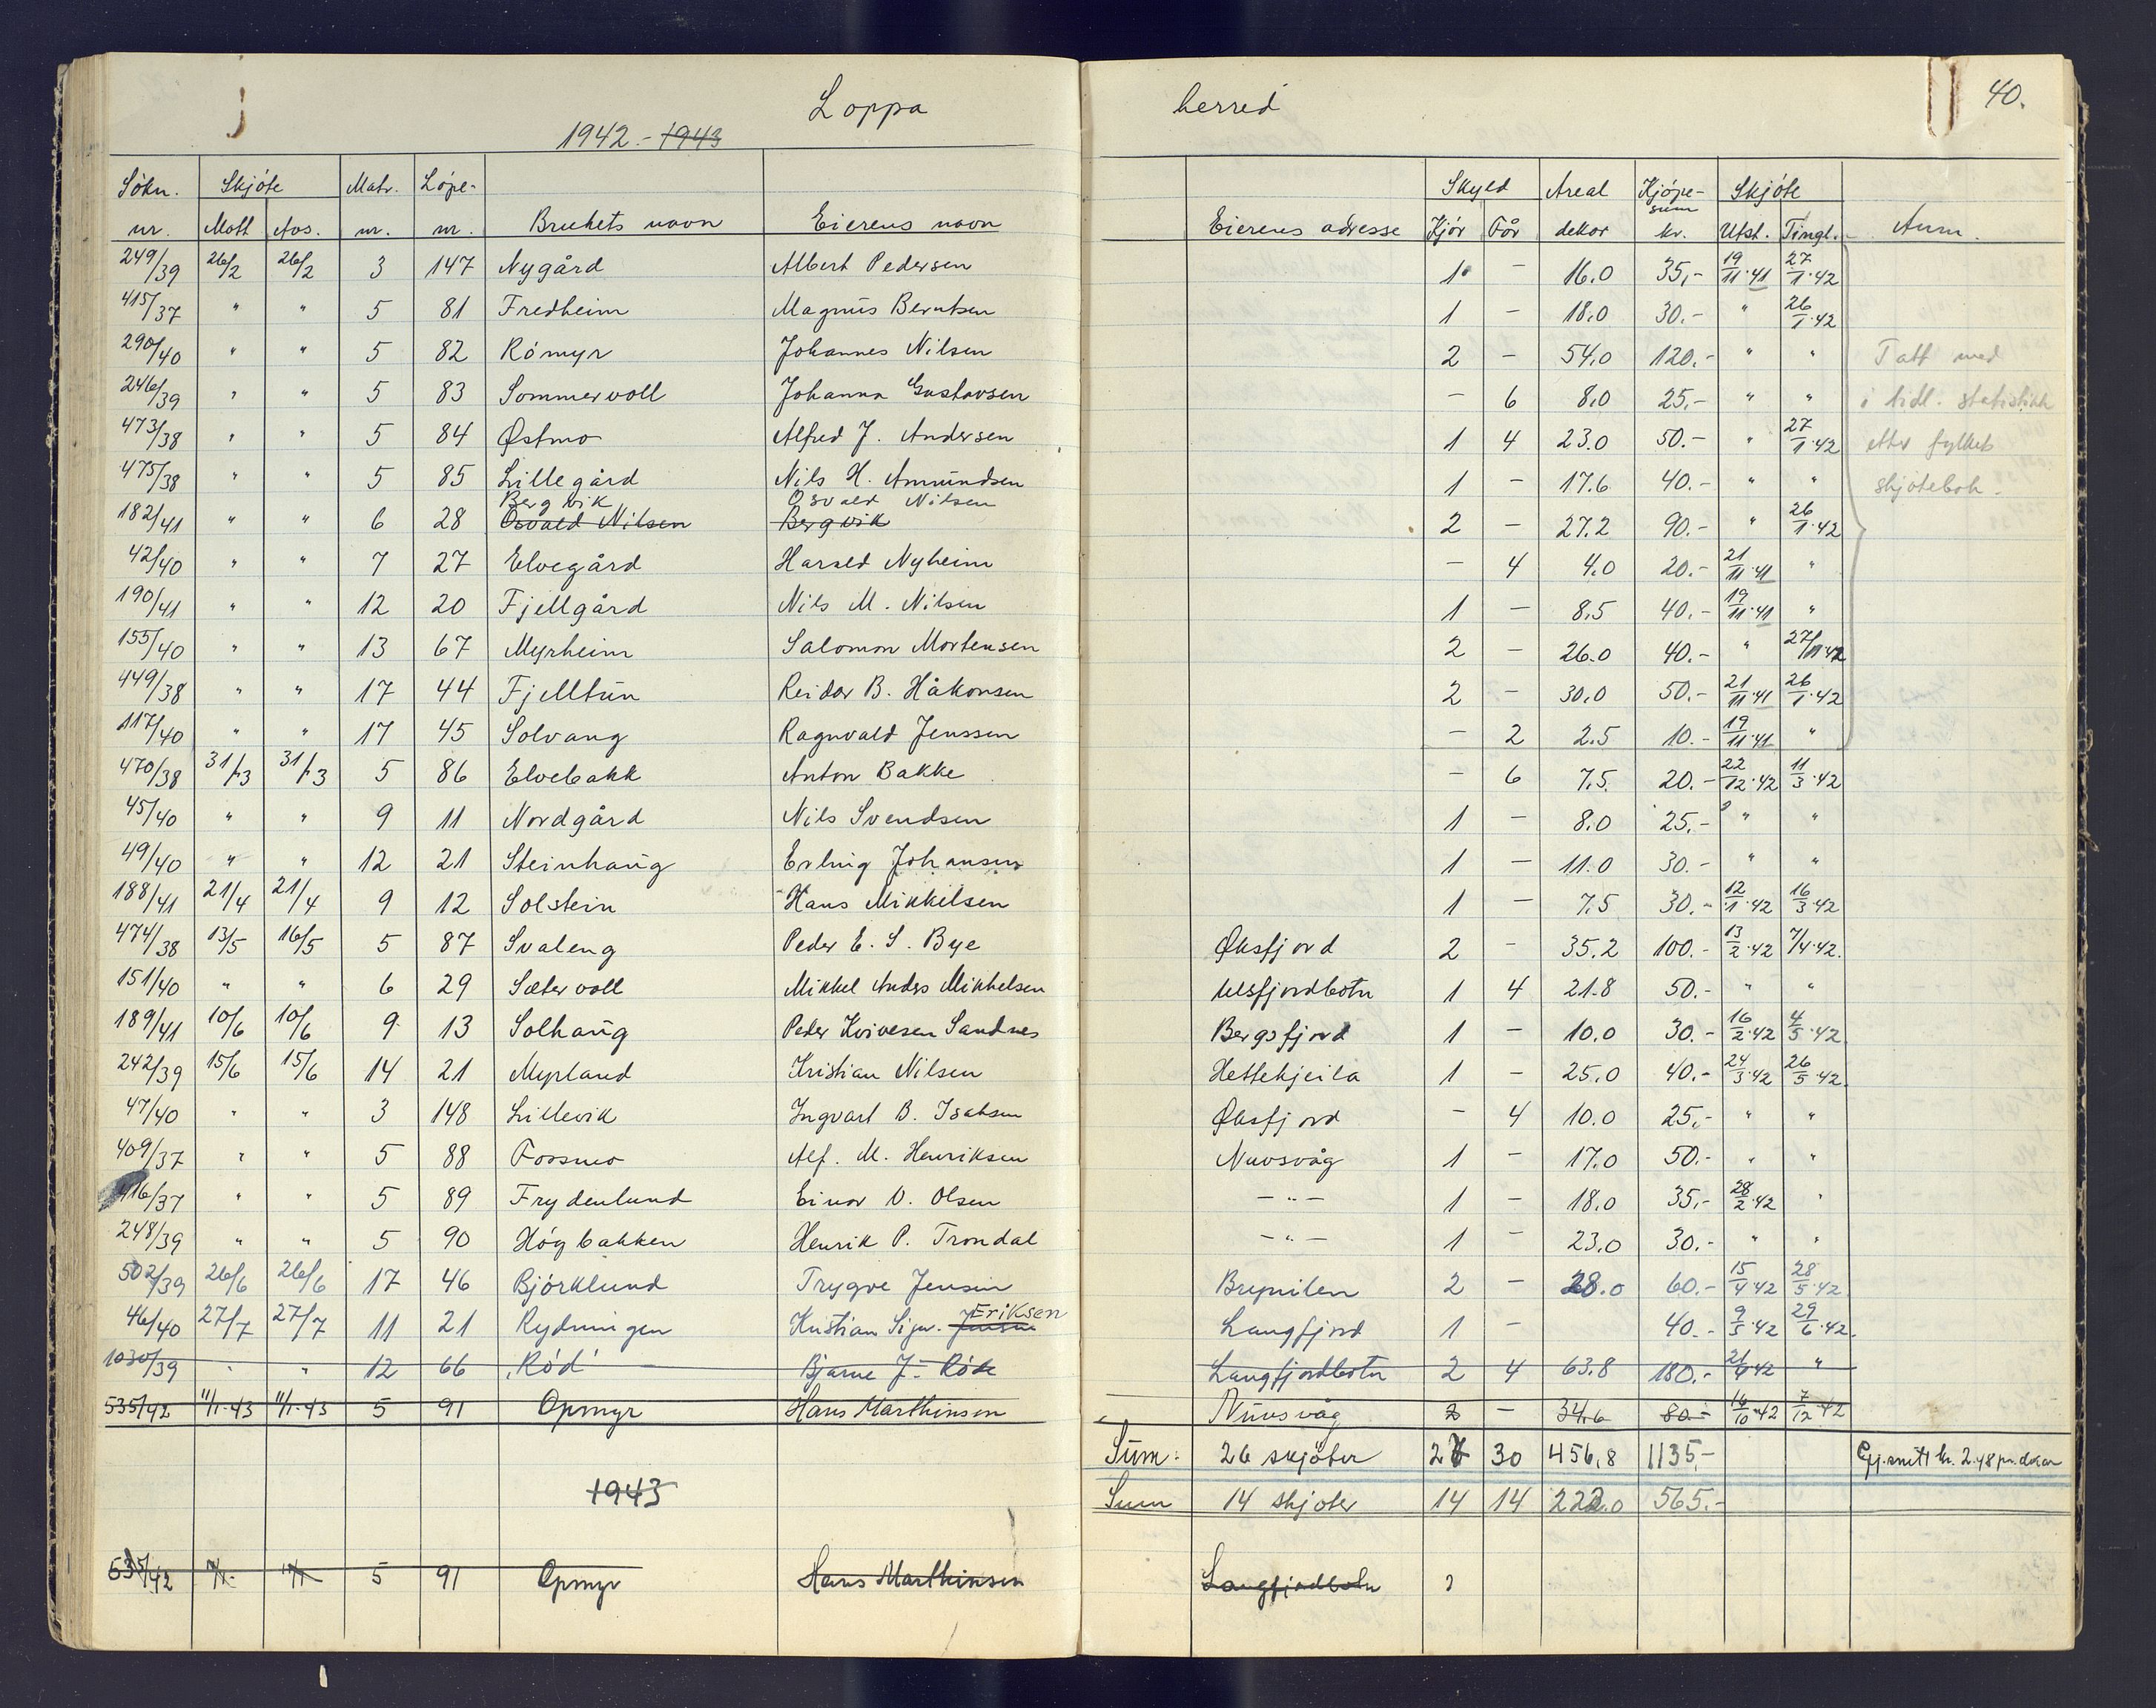 Loppa herred 40.
1942 - 1943
Søkn. Skjøte Matr. Løpe- Skyld Areal Kjøpe- Skjøte
nr. Mott Avs. nr. nr. Brukets navn Eierens navn Eierens adresse Kjør Får dekar sum kr. Utst. Tingl. Anm.
249/39 26/2 26/2 3 147 Nygård Albert Pedersen 1 - 16.0 35,- 19/11·41 27/1·42
415/37 " " 5 81 Fredheim Magnus Berntsen 1 - 18.0 30.- " 26/1·42
290/40 " " 5 82 Rómyr Johannes Nilsen 2 - 54.0 120.- " " Tatt med
246/39 " " 5 83 Sommervoll Johanna Gustavsen - 6 8.0 25.- " " i tidl. statistikk
473/38 " " 5 84 Østmo Alfred J. Andersen 1 4 23.0 50.- " 27/1·42 etter fylkets
475/38 " " 5 85 Lillegård Nils H. Amundsen 1 - 17.6 40.- " " skjøtebok.
Bergvik Osvald Nilsen
182/41 " " 6 28 Osvald Nilsen Bergvik 2 - 27.2 90.- " 26/1·42
42/40 " " 7 27 Elvegård Harald Nyheim - 4 4.0 20.- 21/11·41 "
190/41 " " 12 20 Fjellgård Nils M. Nilsen 1 - 8.5 40.- 19/11·41 "
155/40 " " 13 67 Myrheim Salomon Mortensen 2 - 26.0 40.- " 27/1·42
449/38 " " 17 44 Fjelltun Reidar B. Håkonsen 2 - 30.0 50.- 21/11·41 26/1·42
117/40 " " 17 45 Solvang Ragnvald Jenssen - 2 2.5 10.- 19/11·41 "
470/38 31/3 31/3 5 86 Elvebakk Anton Bakke - 6 7.5 20.- 22/12·42 11/3·42
45/40 " " 9 11 Nordgård Nils Svendsen 1 - 8.0 25.- " "
49/40 " " 12 21 Steinhaug Erling Johansen 1 - 11.0 30.- " "
188/41 21/4 21/4 9 12 Solstein Hans Mikkelsen 1 - 7.5 30.- 12/1·42 16/3·42
474/38 13/5 16/5 5 87 Svaleng Peder E. S. Bye Øksfjord 2 - 35.2 100.- 13/2·42 7/4·42.
151/40 " " 6 29 Sætervoll Mikkel Anders Mikkelsen Ulsfjordbotn 1 4 21.8 50.- " "
189/41 10/6 10/6 9 13 Solhaug Peder Kvivesen Sandnes Bergsfjord 1 - 10.0 30.- 16/2·42 4/5·42
242/39 15/6 15/6 14 21 Myrland Kristian Nilsen Hettekjeila 1 - 25.0 40.- 24/3·42 26/5·42.
47/40 " " 3 148 Lillevik Ingvart B. Isaksen Øksfjord - 4 10.0 25,- " "
409/37 " " 5 88 Fossmo Alf. M. Henriksen Nuvsvåg 1 - 17.0 50.- " "
416/37 " " 5 89 Frydenlund Einar O. Olsen - " - 1 - 18.0 35,- 28/2·42 "
248/39 " " 5 90 Høgbakken Henrik P. Trondal - " - 1 - 23.0 30.- " "
502/39 26/6 26/6 17 46 Bjørklund Trygve Jensen Brynilen 2 - 28.0 60.- 15/4·42 28/5·42
46/40 27/7 27/7 11 21 Rydningen Kristian Sigv. Jensen Eriksen Langfjord 1 - 40.- 9/5·42 29/6·42.
1030/39 " " 12 66 "Ród" Bjarne J. Róde Langfjordbotn 2 4 63.8 180.- 21/4·42 "
535/42 11/1-43 11/1-43 5 91 Opmyr Hans Marthinsen Nuvsvåg 2 - 34.6 80.- 16/10·42 7/12·42
Sum: 26 skjøter 27 30 456,8 1135,- Gj.snitt kr. 2.48 pr. dekar
1943
Sum 14 skjøter 14 14 222.0 565.-
535/42 11/1- 11/1 5 91 Opmyr Hans Marthinsen Langfjordbotn 2